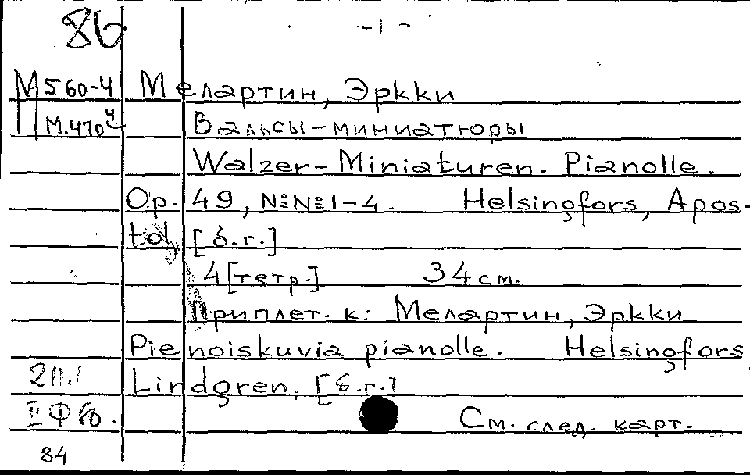 86
-1-
М560-4 Мелартин, Эркки
М.470 Вальсы-миниатюры
Walzer-Miniaturen. Pianolle.
Op. 49, №№1-4. Helsingfors, Apos-
tol, [б.г.]
4 [тетр.] 34 см.
Приплет. к: Мелартин, Эркки
Pienoiskuvia pianolle. Helsingfors
Lindgren, [б.г.]
См. след. карт.
84